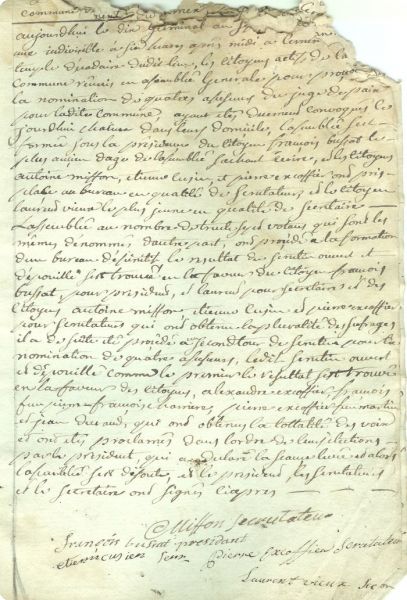 commune de
aujourdhui le dix Germinal an
une indivisible a six heures apres midi a
temple decadaire dudit lieu, les citoyens actifs de la
Commune reunis en assemblée Generale pour
la nomination de quatre assesseurs du juge de paix
pour ladite Commune, ayant etes duement convoqués le
jourdhui chacun dans leurs domiciles, lassemblée sest
formée sous la présidence du Citoyen françois bussat le
plus ancien dage de lassemblée sachant ecrire, et les Citoyens
antoine misson, et pierre excoffier ont pris
place au bureau en qualité de scrutateurs, et le Citoyen
laurent vieux le plus jeune en qualité de Secretaire —
Lassemblée au nombre de trente sept votans qui sont les
mêmes dénommés dautre part, ont procedé a la formation
dun bureau definitif le resultat du scrutin ouvert et
dépouillé sest trouvé en la faveur du Citoyen françois
bussat pour président, et laurent pour secretaire et des
Citoyens antoine misson et pierre excoffier
pour scrutateurs qui ont obtenu la pluralité des suffrages
il a de suite été procédé a second tour de scrutin pour la
nomination de quatre assesseurs, ledit scrutin ouvert
et dépouillé comme le premier le resultat sest trouvé
en la faveur des Citoyens, alexandre excoffier, françois
françois pierre excoffier feu martin
et jean qui ont obtenus la totalité des voix
et ont étés proclamés dans lordre de leurs élections
par le président, qui a déclaré la séance levée et alors
lassemblée sest dissoute, et le président, les scrutateurs
et le secretaire ont signés ciapres —
Misson scrutateur
françois bussat président
Pierre Excoffier Scrutateur
Laurent vieux